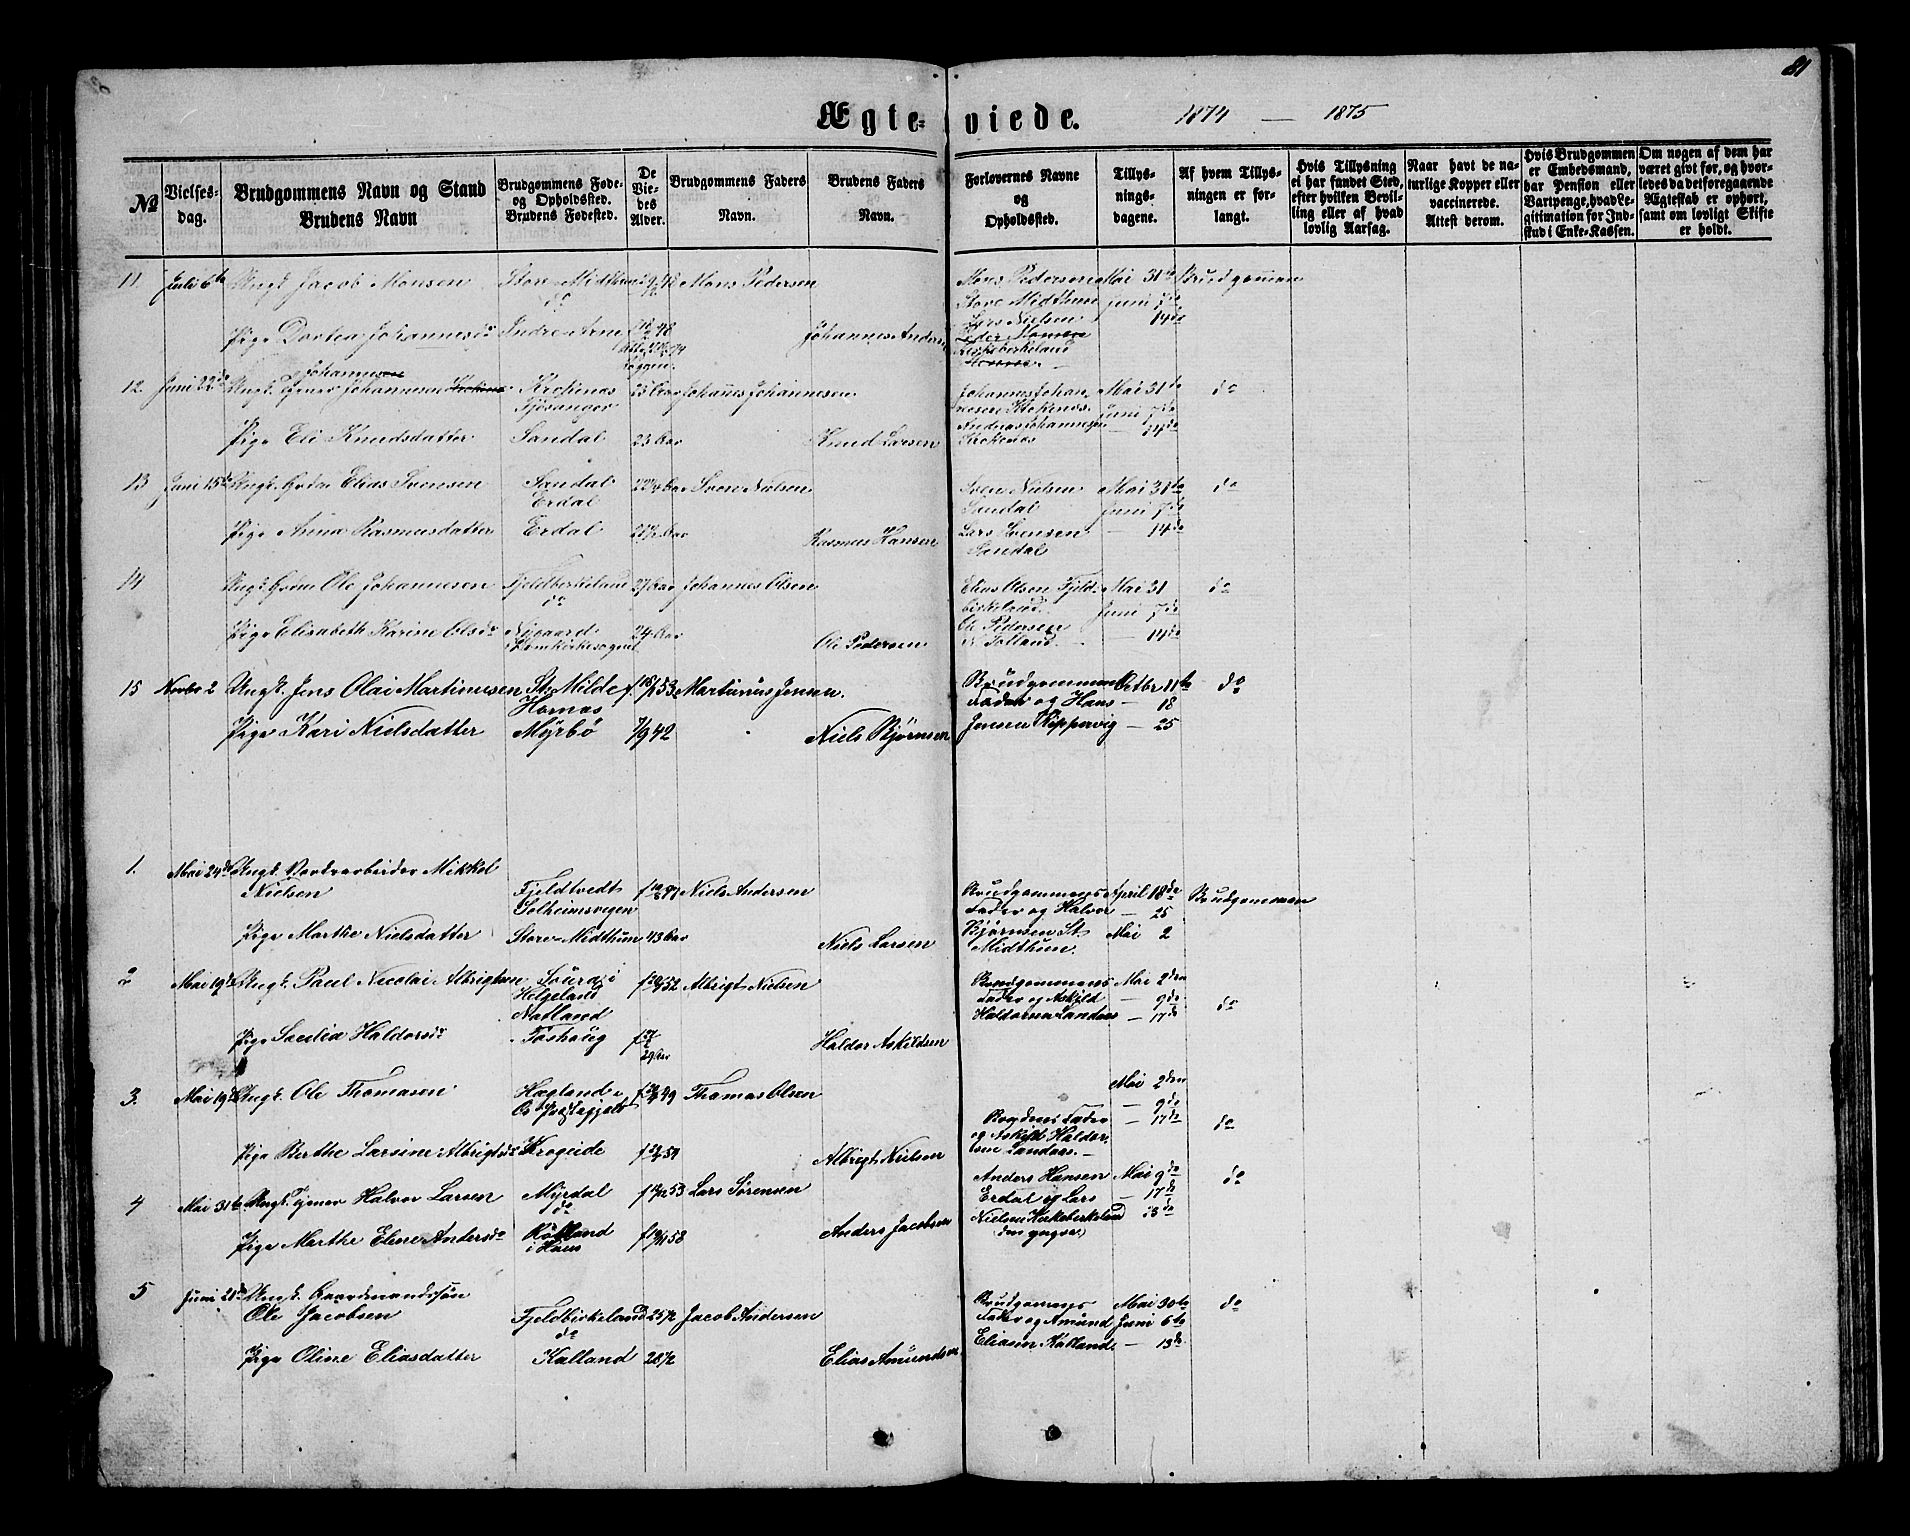 81
Ægteviede. 1874 — 1875
№
Vielsesdag.
Brudgommens Navn og Stand
Brudens Navn
Brudgommens Føde- og Opholdssted.
Brudens Fødested.
De Viedes Alder.
Brudgommens Faders Navn.
Brudens Faders Navn.
Forlovernes Navne og Opholdssted.
Tillysningsdagene.
Af hvem Tillysningen er forlangt.
Hvis Tillysning ei har fundet Sted, efter hvilken Bevilling eller af hvad lovlig Aarsag.
Naar havt de naturlige Kopper eller vaccinerede. Attest derom.
Hvis Brudgommen er Embedsmand, har Pension eller Vartpenge, hvad Legitimation for Indskud i Enke-Kassen.
Om nogen af dem har været givt før, og hvorledes da det foregaaende Ægteskab er ophørt, samt om lovligt Skifte er holdt.
11. Juli 6te Ungk. Jacob Monsen Store-Midthun Mons Pedersen Mons Pedersen Mai 31te Brudgommen
do Store Midthun Juni 7de
Pige Dortea Johannesdr Indre-Arne Johannes Anders Lars Nielsen 14de
Kirkebirkeland
12. Juni 22de Ungk. Tjener Johannes Johannesen Krokenæs 25 Aar Johannes Johannesen Johannes Johan- Mai 31te do
Fjøsanger nesen Krokenæs Juni 7de
Pige Eli Knudsdatter Sandal 23 Aar Knud Larsen Andreas Johannesen 14de
Krokenæs
13 Juni 15de Ungk. Elias Svensen Sandal Sven Nielsen Sven Nielsen Mai 31te do
Erdal Sandal Juni 7de
Pige Anna Rasmusdatter Erdal Rasmus Hansen Lars Svensen 14de
Sandal
14 Ungk. Ole Johannesen Fjeldbirkeland 27 Aar Johannes Olsen Elias Olsen Fjeld- Mai 31 do
do birkeland Juni 7de
Pige Elisabeth Karine Olsdr Nygaard 24 Aar Ole Pedersen Ole Pedersen 14de
i Domkirkesognet
15 Novbr 2 Ungk. Jens Olai Martinusen St. Milde 53 Martinus Jensen. Brudgommens Octbr 11te do
Hornæs Fader og Hans — 18
Pige Kari Nielsdatter Myrbø 7/9 42 Niels Bjørnsen Jensen Skippervig — 25
1. Mai 24de Ungk. Mikkel
Nielsen Fjeldtvedt Niels Andersen Brudgommens April 18de Brudgommen
Solheimsvegen Fader og Halvor — 25
Pige Marthe Nielsdatter Store-Midthun 43 Aar Niels Larsen Bjørnsen St Mai 2
Midthun.
2 Mai 19de Ungk. Paul Nicolai Albrigtsen 52 Albrigt Nielsen Brudgommens Mai 2den
Helgeland Fader og Askild — 9de do
Natland Haldorsen Landaas — 17de
Pige Haldorsdr Haldor Askildsen
3. Mai 19de Ungk. Ole Thomasen Hægland i 49 Thomas Olsen Mai 2den
Os Præstegjeld — 9de
Brudens Fader — 17de do
Pige Berthe Larsine Albrigtsdr Krogeide Albrigt Nielsen og Askild Haldor-
sen Landaas.
4 Mai 31te Ungk. Tjener Halvor Larsen Myrdal 53 Lars Sørensen Anders Hansen Mai 9de do
do Erdal og Lars — 17de
Pige Marthe Elene Andersdr i Haus 58 Anders Jacobsen Nielsen Kirkebirkeland
(den yngre)
5 Juni Ungk. Gaardmandssøn
Ole Jacobsen Fjeldbirkeland 25 1/2 Jacob Andersen Brudgommens Mai 30te do
do Fader og Amund Juni 6te
Pige Oline Eliasdatter Kalland 20 1/2 Elias Amundsen Eliasen Kalland — 13de